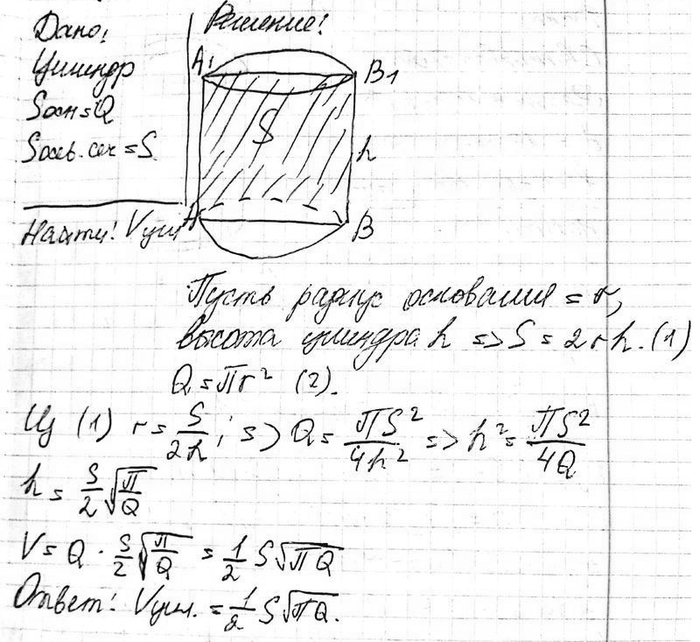 Дано:
Цилиндр
Sосн = Q
Sосев. сеч = S
Найти: Vцил
Решение:
A₁ B₁
S
h
A B
Пусть радиус основания = r,
высота цилиндра h => S = 2rh. (1)
Q = πr² (2).
Из (1) r = S/2h ; => Q = πS²/4h² => h² = πS²/4Q
h = S/2 √(π/Q)
V = Q · S/2 √(π/Q) = 1/2 S√(πQ)
Ответ: Vцил. = 1/2 S√(πQ).